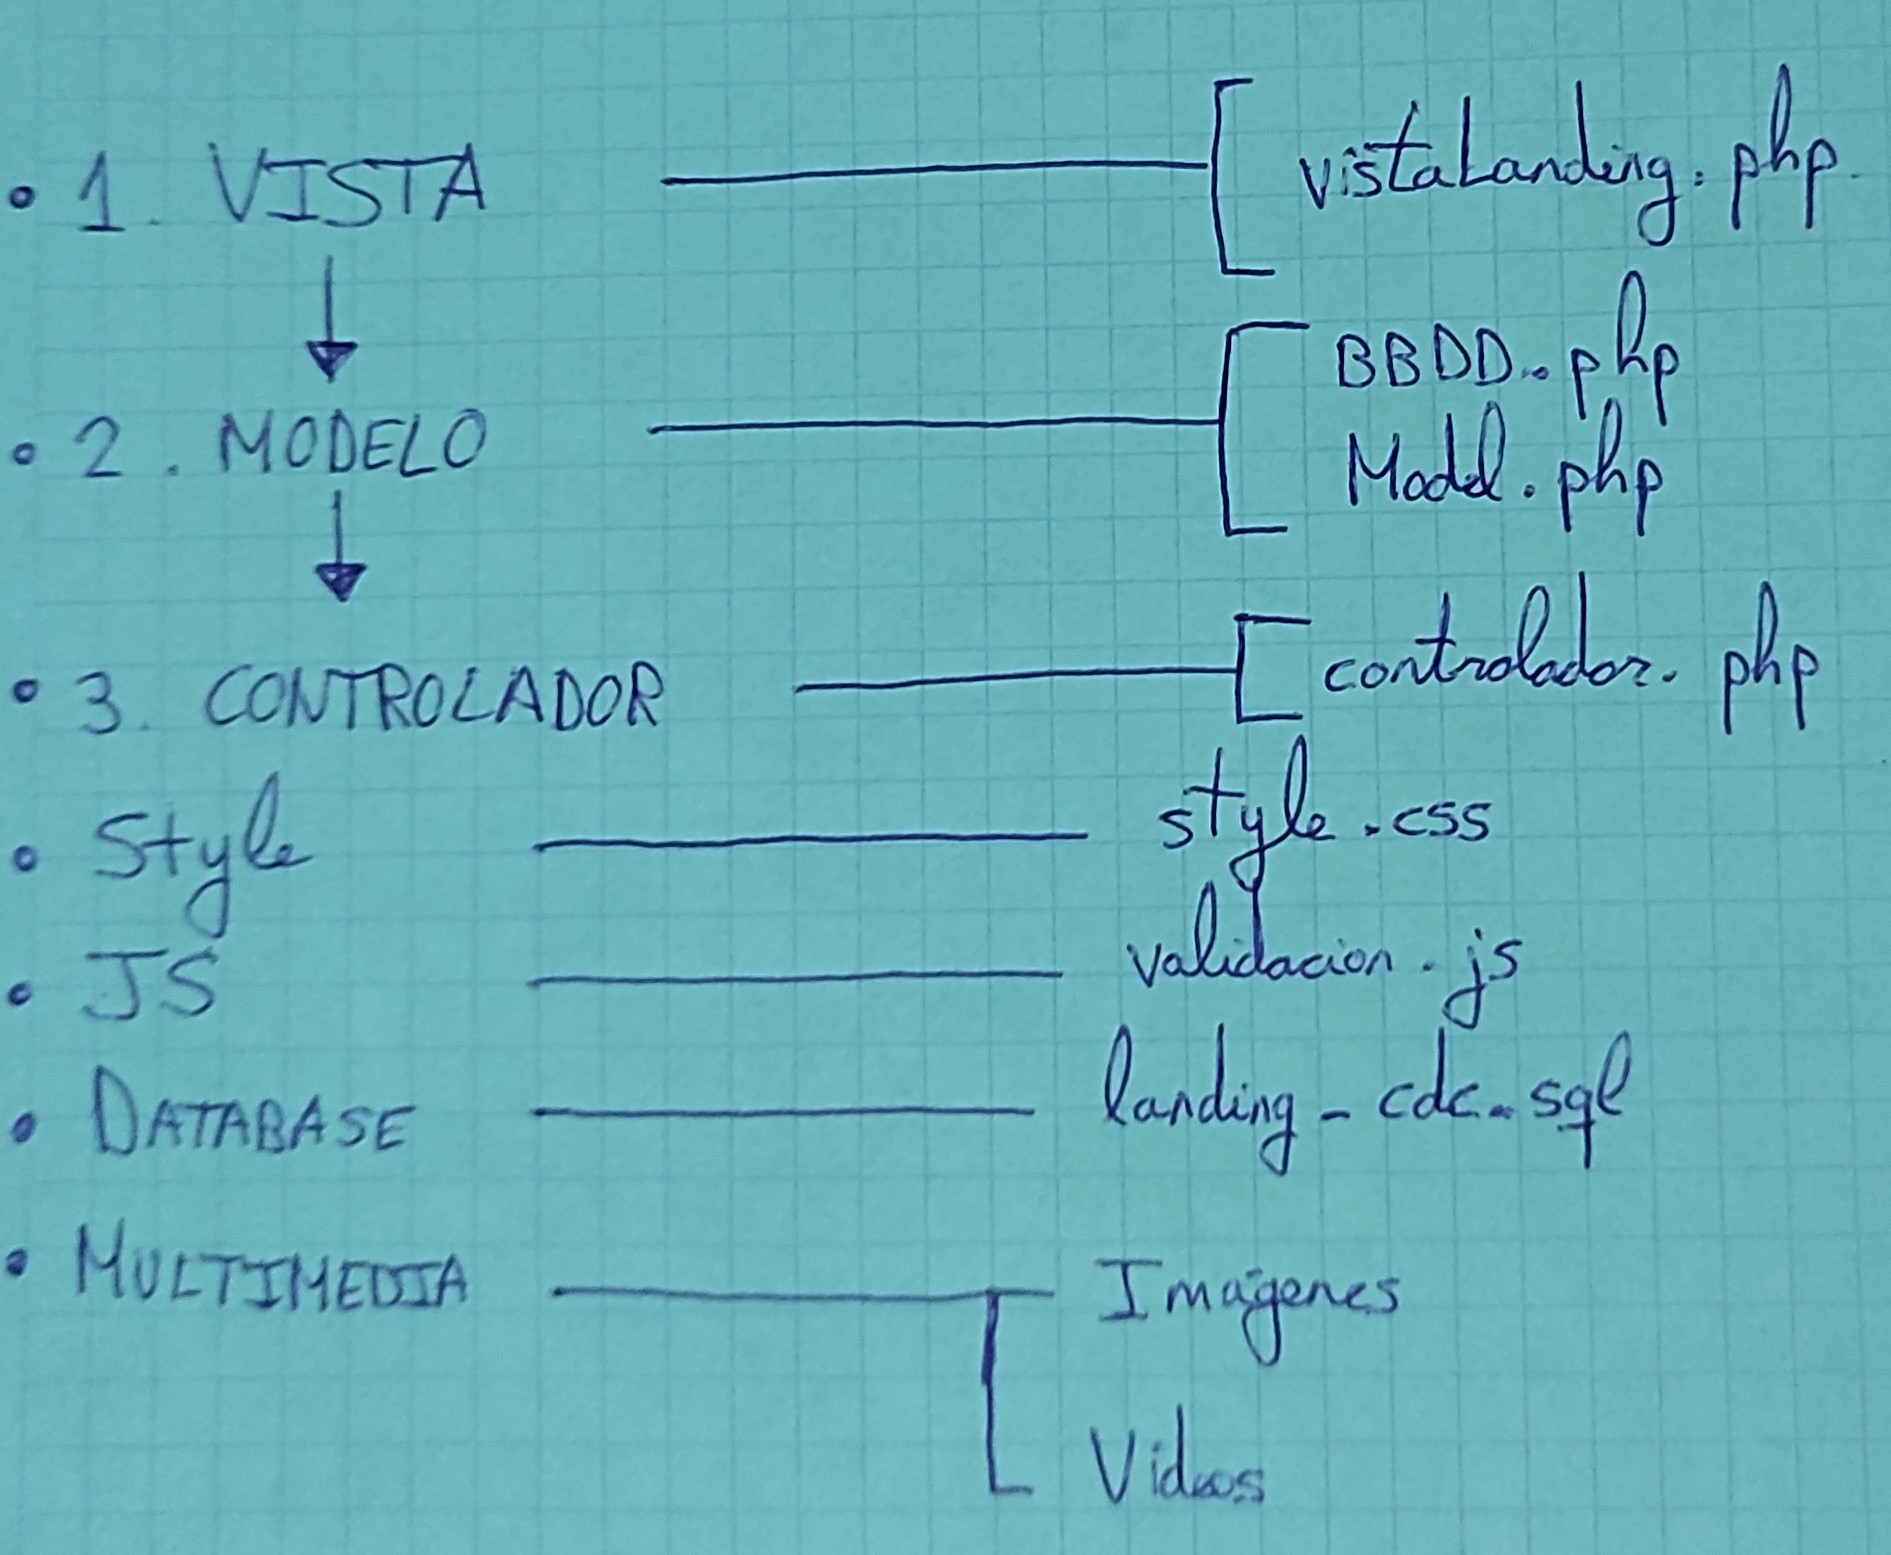 • 1. VISTA vistaLanding.php.
• 2. MODELO BBDD.php
Model.php
• 3. CONTROLADOR controlador.php
• Style style.css
• JS validacion.js
• DATABASE landing_cdc.sql
• MULTIMEDIA Imágenes
Videos